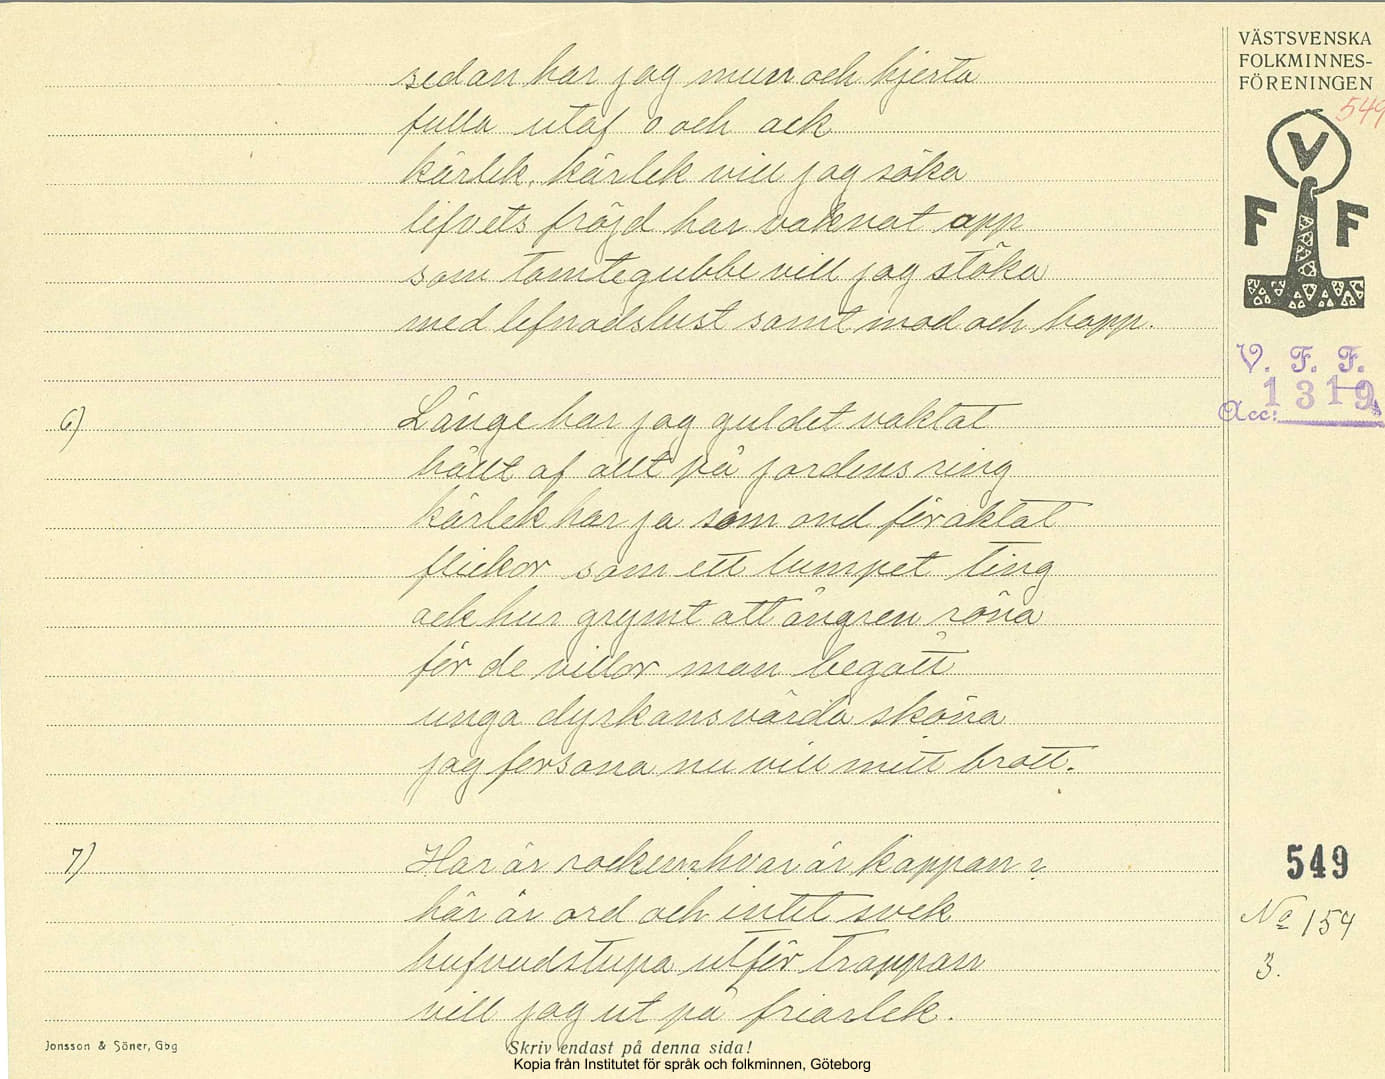 VÄSTSVENSKA
FOLKMINNES-
FÖRENINGEN
549
V
F F
V. F. F.
1319
Acc:
sedan har jag mun och hjerta
fulla utaf o och ack
kärlek, kärlek vill jag söka
lifvets fröjd har vaknat opp
som tomtegubbe vill jag stöka
med lefnadslust samt mod och hopp.
6) Länge har jag guldet vaktat
hållt af allt på jordens ring
kärlek har ja som ond föraktat
flickor som ett lumpet ting
ack hur grymt att ångren röna
för de villor man begått
unga dyrkansvärda sköna
jag försona nu vill mitt brott.
7) Har är rocken, hvar är kappan?
här är ord och intet svek
hufvudstupa utför trappan
vill jag ut på friarlek.
549
No 154
3.
Jonsson & Söner, Gbg
Skriv endast på denna sida!
Kopia från Institutet för språk och folkminnen, Göteborg